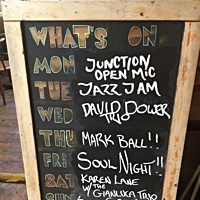 WHAT'S ON
MON JUNCTION OPEN MIC
TUE JAZZ JAM
WED DAVID DOWER TRIO
THU MARK BALL!!
FRI SOUL NIGHT!!
SAT KAREN LANE
W/ THE GIANLUKA TRIO
SUN